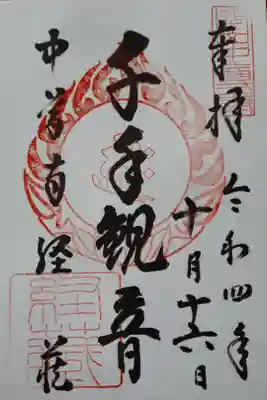 奉拝
令和四年
十月十六日
千手観音
中尊寺経蔵